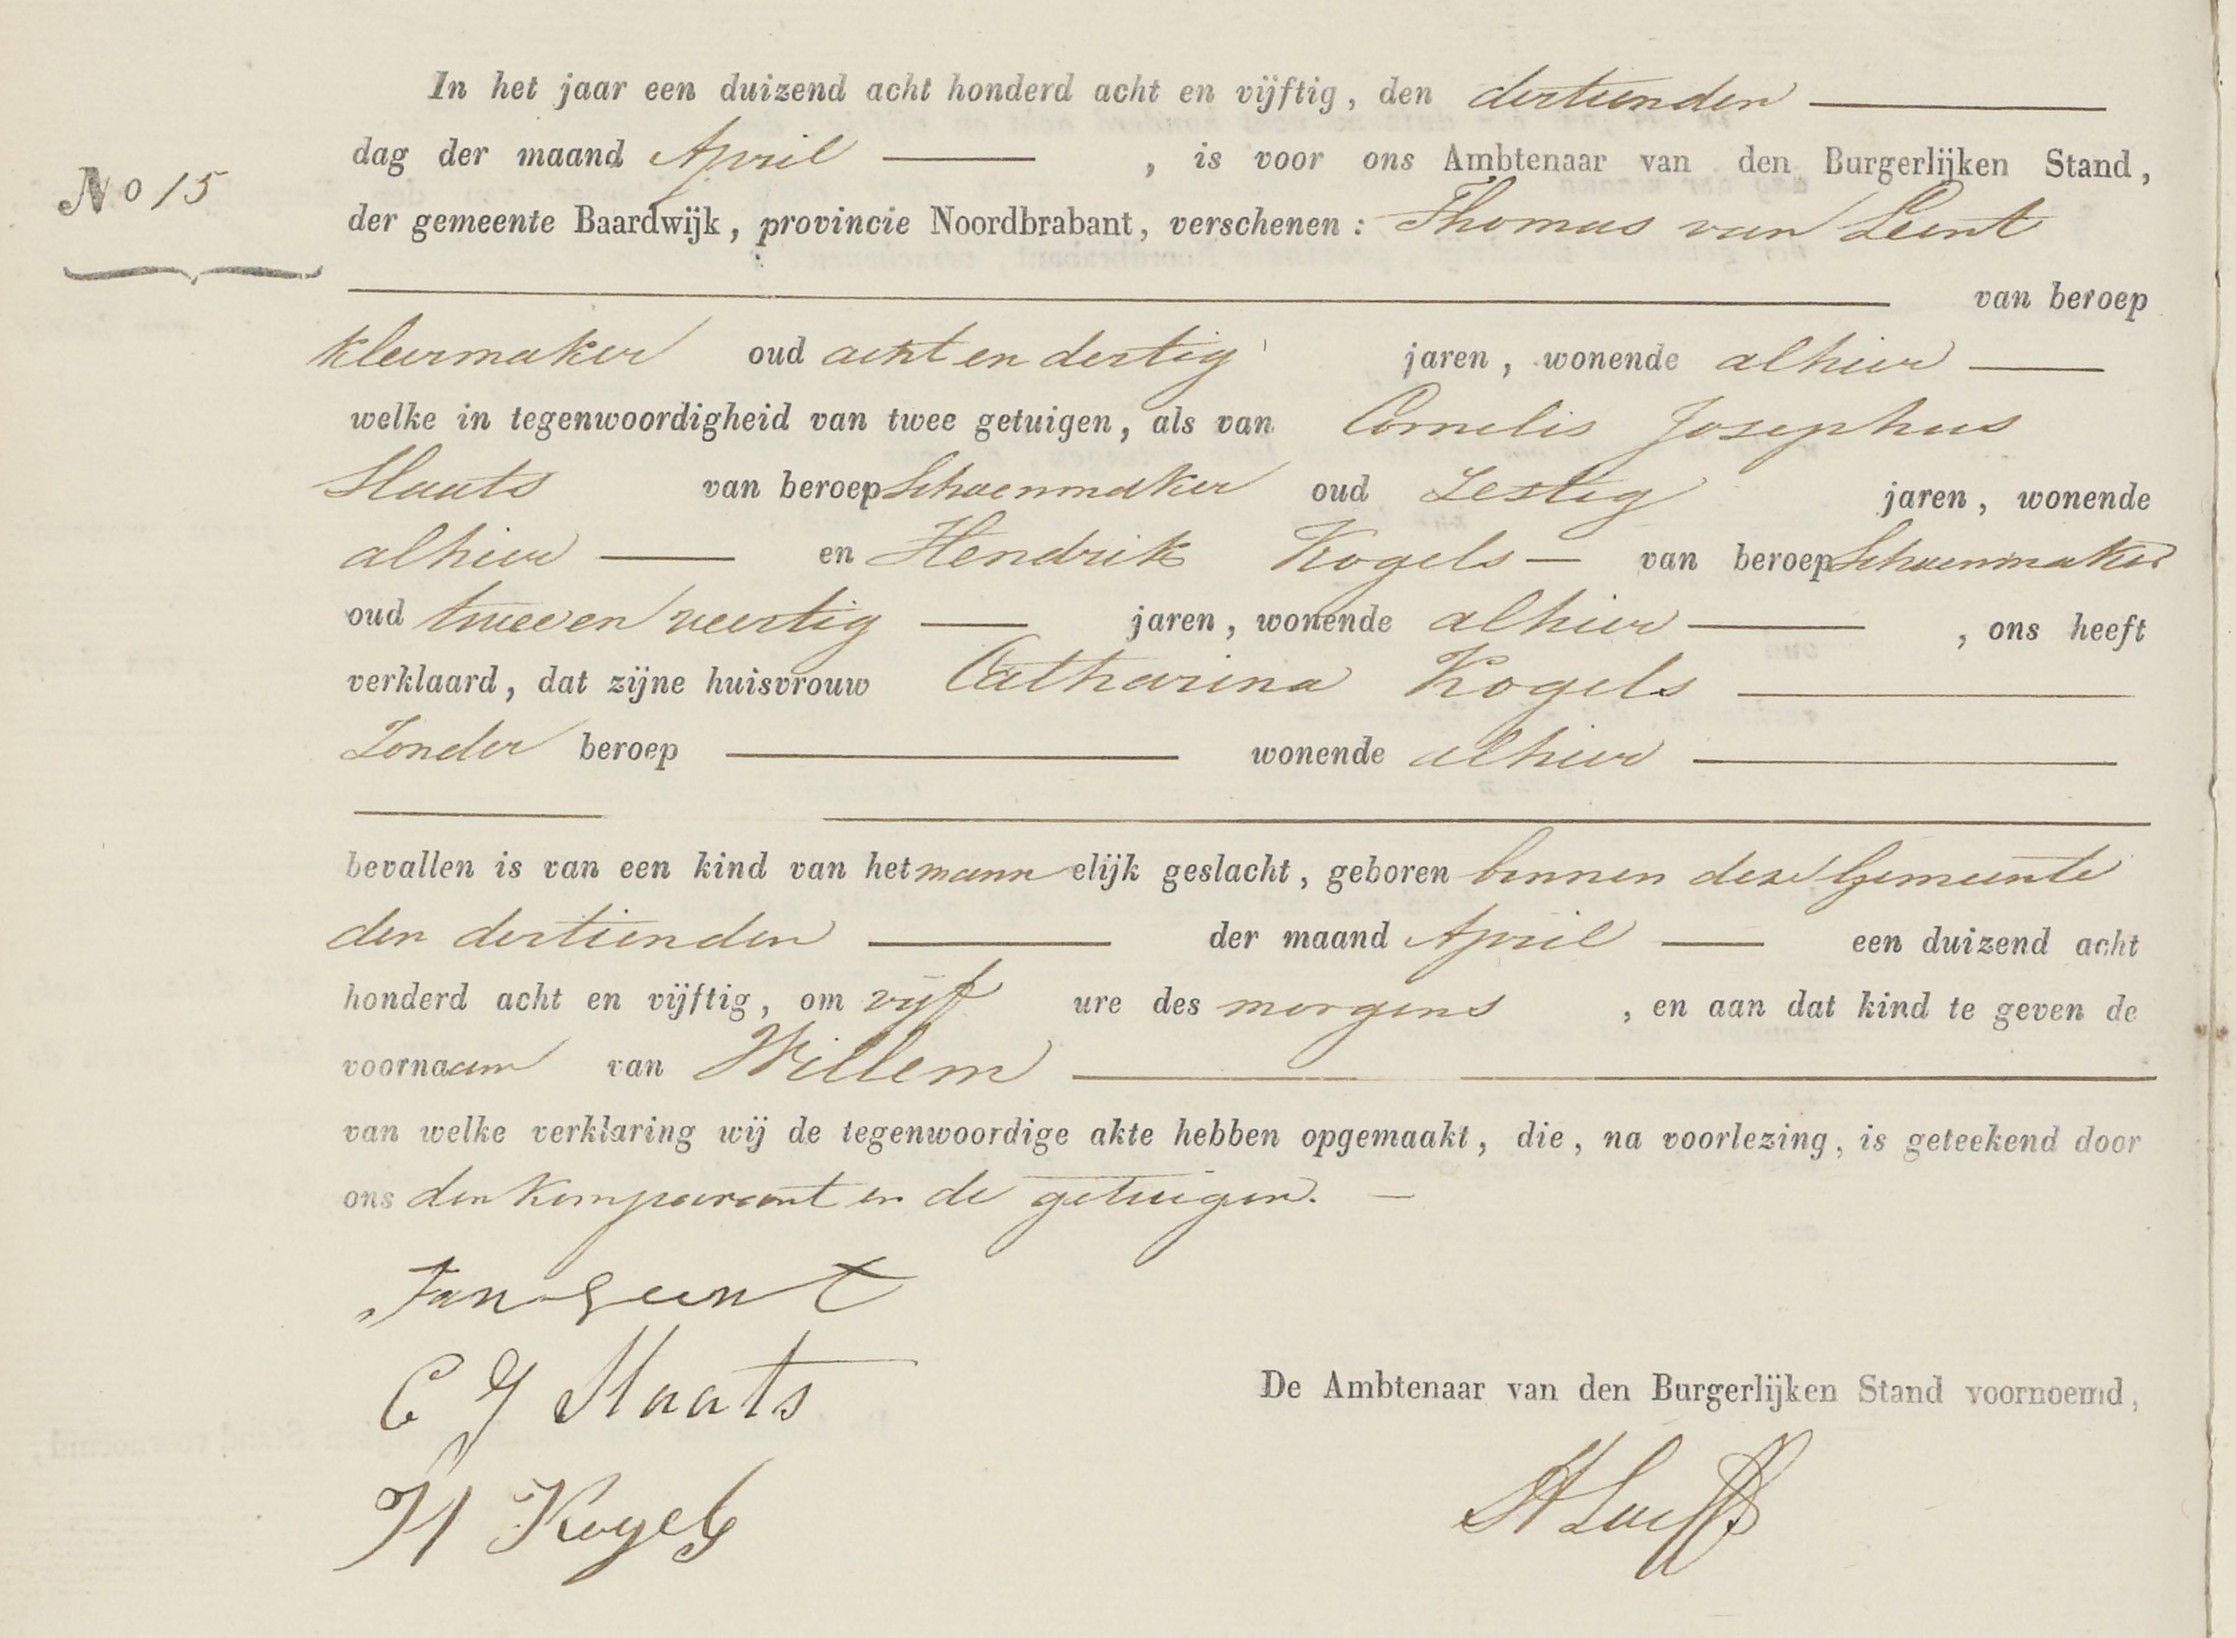 In het jaar een duizend acht honderd acht en vijftig, den dertienden
dag der maand April , is voor ons Ambtenaar van den Burgerlijken Stand,
No 15
der gemeente Baardwijk, provincie Noordbrabant, verschenen: Thomas van Leent
van beroep
kleermaker oud acht en dertig jaren, wonende alhier
welke in tegenwoordigheid van twee getuigen, als van Cornelis Josephus
Staats van beroep Schoenmaker oud Zestig jaren, wonende
alhier en Hendrik Kogels van beroep Schoenmaker
oud twee en veertig jaren, wonende alhier , ons heeft
verklaard, dat zijne huisvrouw Catharina Kogels
Zonder beroep wonende alhier
bevallen is van een kind van het mannelijk geslacht, geboren binnen deze Gemeente
den dertienden der maand April een duizend acht
honderd acht en vijftig, om vijf ure des morgens , en aan dat kind te geven de
voornaam van Willem
van welke verklaring wij de tegenwoordige akte hebben opgemaakt, die, na voorlezing, is geteekend door
ons den komparant en de getuigen.
van Leent
C J Staats
De Ambtenaar van den Burgerlijken Stand voornoemd,
H Kogels